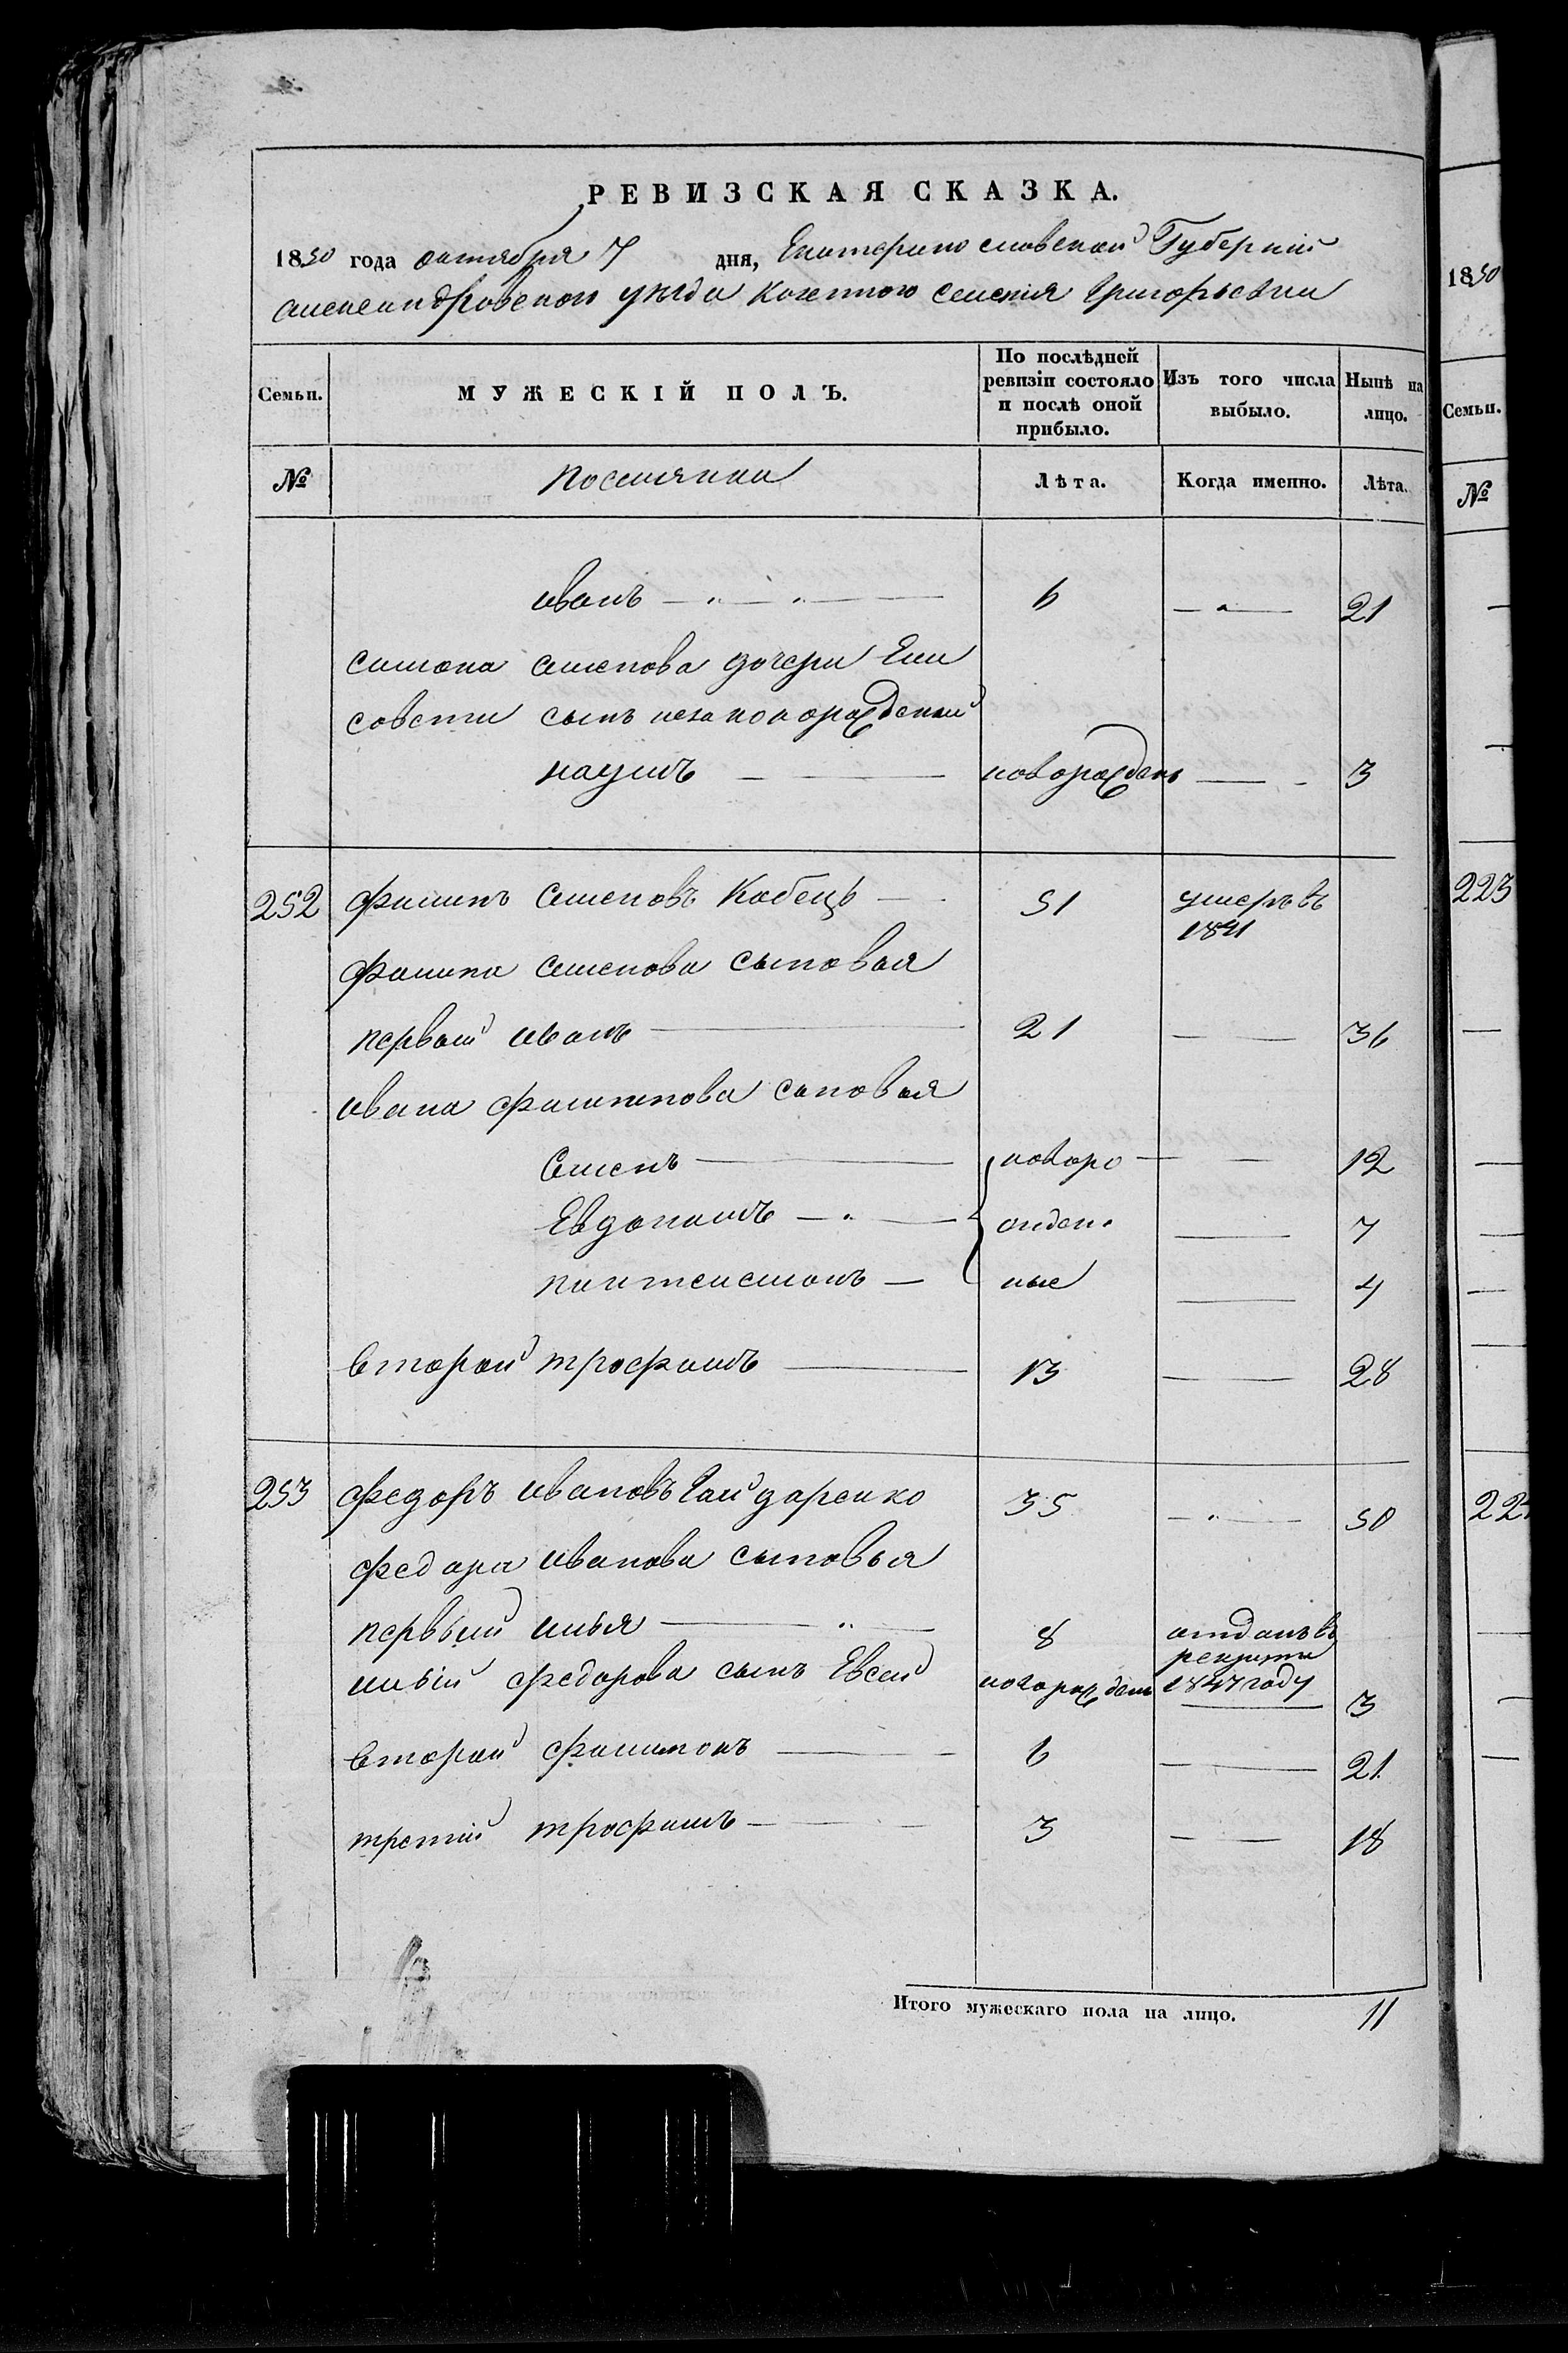 РЕВИЗСКАЯ СКАЗКА.
1850 года октября 7 дня, Екатеринославской Губерніи
Александровского уѣзда казенного селенія Григорьевки
Семьи. МУЖЕСКІЙ ПОЛЪ. По послѣдней ревизіи состояло и послѣ оной прибыло. Изъ того числа выбыло. Нынѣ на лицо.
№ Поселянки Лѣта. Когда именно. Лѣта.
иванъ 6 21
симона семенова дочери Ели
совети сынъ незаконорожденой
наумъ новорожденъ 3
252 Филипъ Семеновъ Кобецъ 51 умеръ въ 1841
Филипа Семенова сыновья
первой иванъ 21 36
ивана филипова сыновья
Семенъ новоро 12
Евдокимъ жден. 7
пантелемонъ ные 4
второй трофимъ 13 28
253 федоръ ивановъ Гайдаренко 35 50
федора иванова сыновья
первый илья 8 отданъ въ рекруты 1847 году
ильи федорова сынъ Евсей новорожденъ 3
второй филимонъ 6 21
третій трофимъ 3 18
Итого мужескаго пола на лицо. 11
1850
Семьи.
№
223